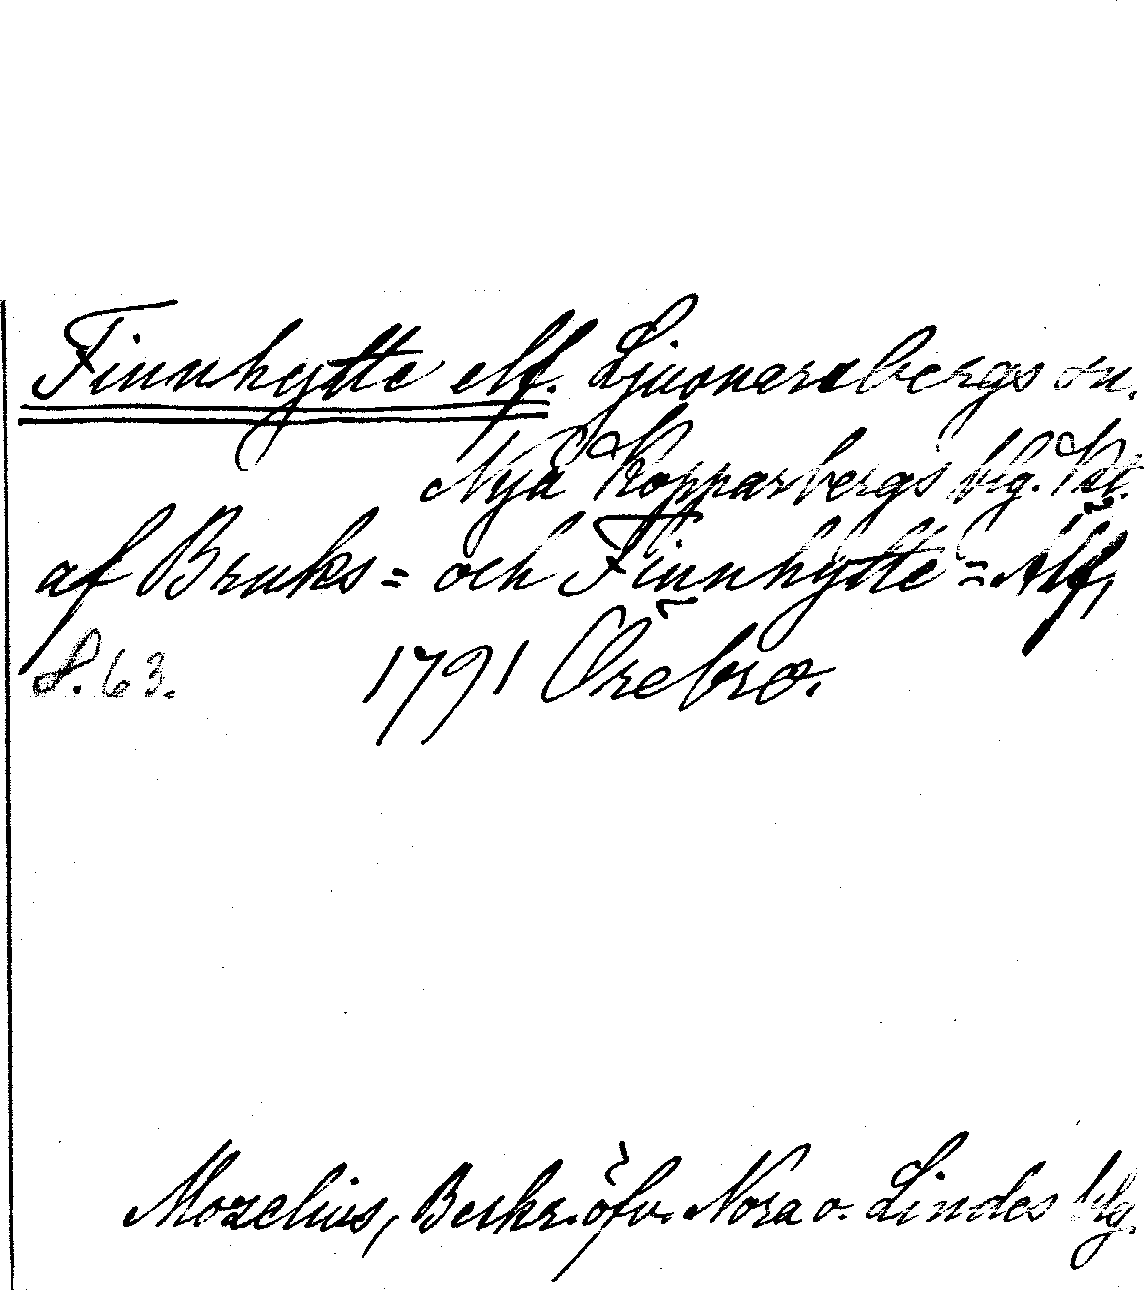 Finnhytte elf. Ljusnarsbergs sn.
Nya Kopparbergs blg.
af Bruks= och Finnhytte=Älf,
S. 63. 1791 Örebro.
Mozelius, Beskr. öfv. Nora o. Lindes blg.